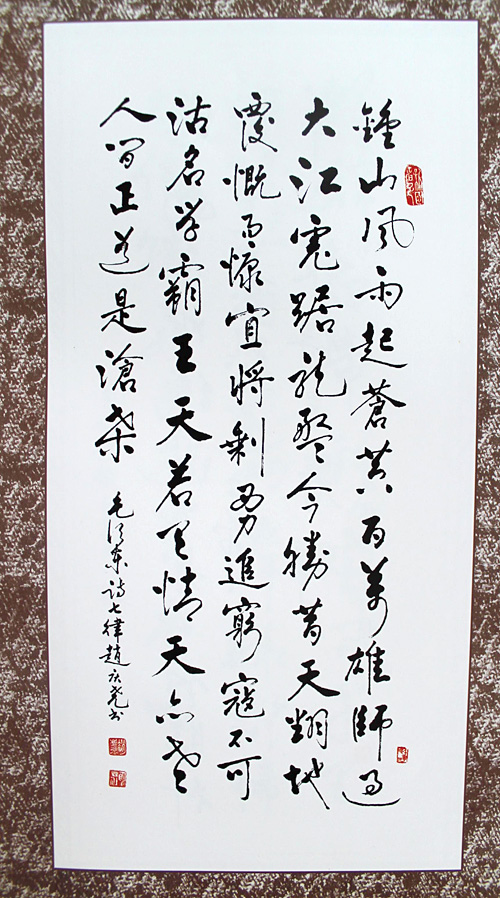 鍾山风雨起蒼黄百万雄師过
大江虎踞龙盤今勝昔天翻地
覆慨而慷宜将剩勇追窮寇不可
沽名学霸王天若有情天亦老
人间正道是滄桑
毛泽东诗七律趙庆尧书